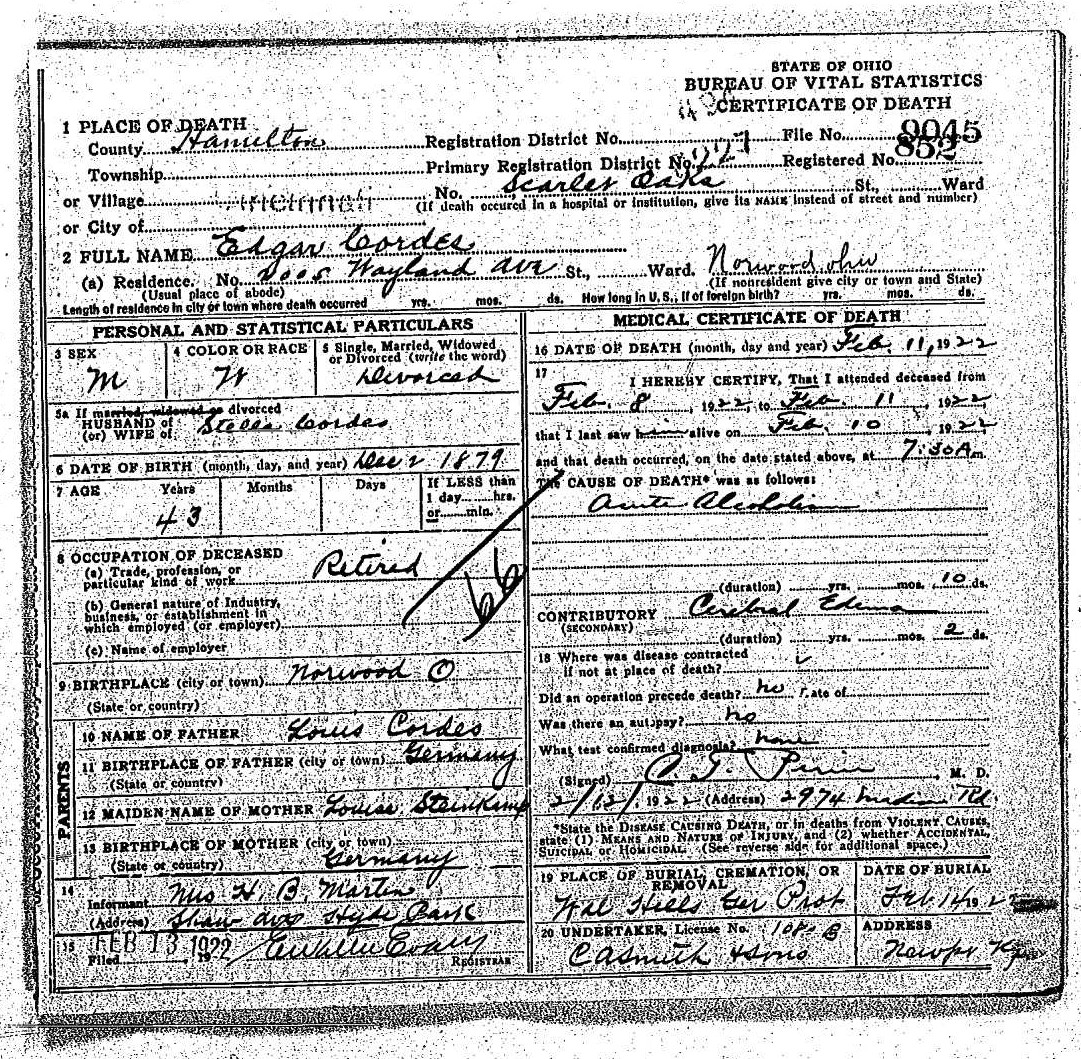 STATE OF OHIO
BUREAU OF VITAL STATISTICS
CERTIFICATE OF DEATH
1 PLACE OF DEATH
County Hamilton Registration District No. File No. 9045
Township Primary Registration District No. 227 Registered No. 852
or Village No. Scarlet Oaks St., Ward
(If death occured in a hospital or institution, give its NAME instead of street and number)
or City of
2 FULL NAME Edgar Cordes
(a) Residence. No. 2005 Wayland Ave St., Ward. Norwood, ohio
(Usual place of abode) (If nonresident give city or town and State)
Length of residence in city or town where death occurred yrs. mos. ds. How long in U. S., if of foreign birth? yrs. mos. ds.
PERSONAL AND STATISTICAL PARTICULARS
3 SEX 4 COLOR OR RACE 5 Single, Married, Widowed or Divorced (write the word)
M W Divorced
5a If married, widowed or divorced
HUSBAND of
(or) WIFE of Stella Cordes
6 DATE OF BIRTH (month, day, and year) Dec 2 1879
7 AGE Years Months Days If LESS than
1 day hrs.
or min.
43
8 OCCUPATION OF DECEASED
(a) Trade, profession, or
particular kind of work Retired
(b) General nature of Industry,
business, or establishment in
which employed (or employer)
(c) Name of employer
66
9 BIRTHPLACE (city or town) Norwood O
(State or country)
PARENTS
10 NAME OF FATHER Louis Cordes
11 BIRTHPLACE OF FATHER (city or town) Germany
(State or country)
12 MAIDEN NAME OF MOTHER Louisa Steinkamp
13 BIRTHPLACE OF MOTHER (city or town)
(State or country) Germany
14
Informant Mrs H. B. Martin
(Address) Shaw ave Hyde Park
15 FEB 13 1922
Filed , 19 REGISTRAR
MEDICAL CERTIFICATE OF DEATH
16 DATE OF DEATH (month, day and year) Feb. 11, 1922
17
I HEREBY CERTIFY, That I attended deceased from
Feb. 8, 1922, to Feb. 11, 1922
that I last saw him alive on Feb. 10, 1922
and that death occurred, on the date stated above, at 7:30 A m.
THE CAUSE OF DEATH* was as follows:
Acute Alcoholism
(duration) yrs. mos. 10 ds.
CONTRIBUTORY Cerebral Edema
(SECONDARY)
(duration) yrs. mos. 2 ds.
18 Where was disease contracted
if not at place of death?
Did an operation precede death? no Date of
Was there an autopsy? no
What test confirmed diagnosis? none
(Signed) , M. D.
2/12/, 1922 (Address) 2974 Madison Rd.
*State the DISEASE CAUSING DEATH, or in deaths from VIOLENT CAUSES,
state (1) MEANS AND NATURE OF INJURY, and (2) whether ACCIDENTAL,
SUICIDAL or HOMICIDAL. (See reverse side for additional space.)
19 PLACE OF BURIAL, CREMATION, OR REMOVAL DATE OF BURIAL
Wal Hills Ger Prot Feb 14 1922
20 UNDERTAKER, License No. 1082 B ADDRESS
C A Smith & Sons Newpo Ky